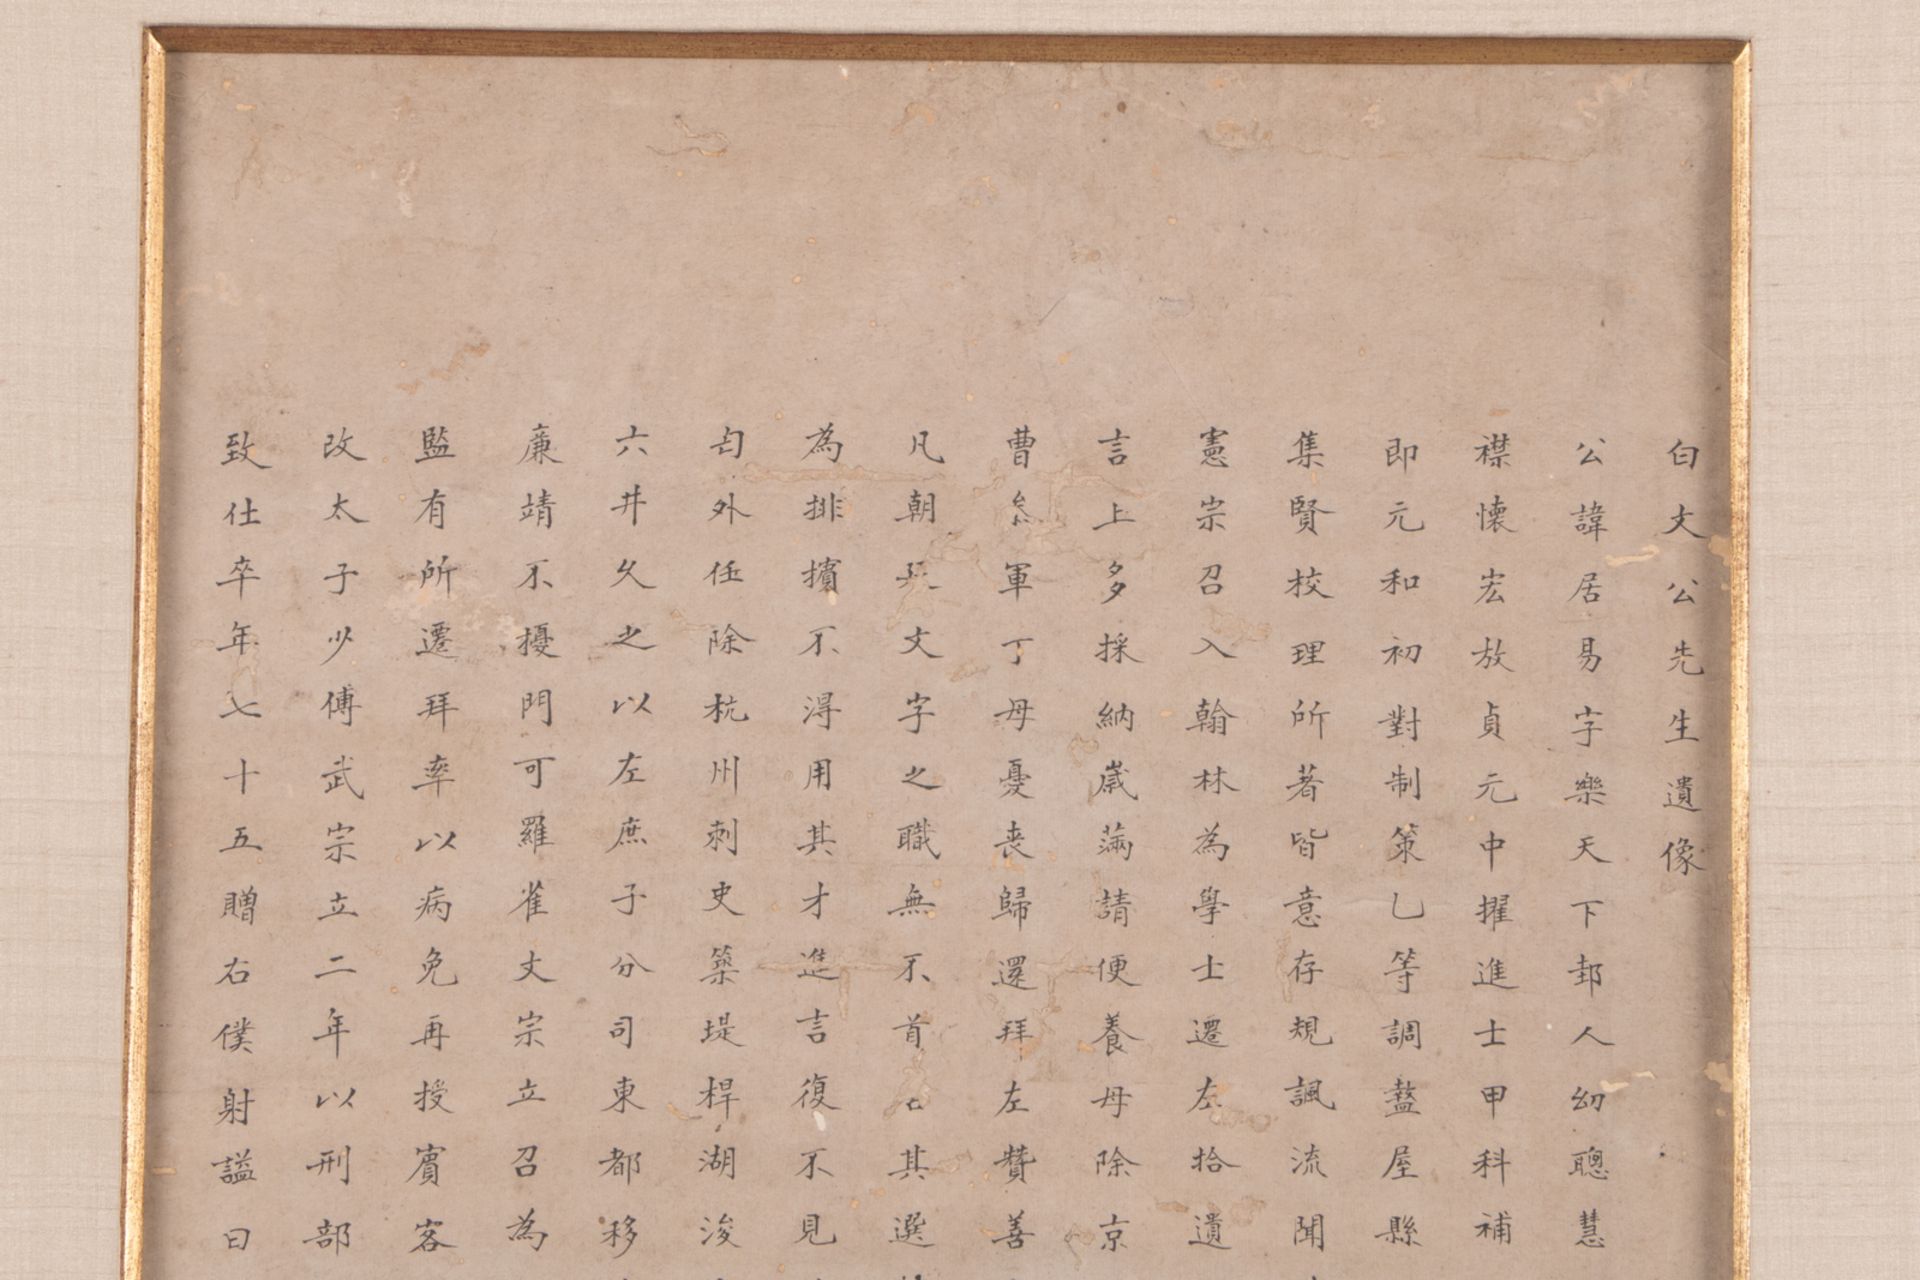 白文公先生遺像
公諱居易字樂天下邽人幼聰慧
襟懷宏放貞元中擢進士甲科補
即元和初對制策乙等調盩屋縣
集賢校理所著皆意存規諷流聞
憲宗召入翰林為學士遷左拾遺
言上多採納歲滿請便養母除京
曹叅軍丁母憂丧歸還拜左贊善
凡朝文字之職無不首其選
為排擯不得用其才進言復不見
匄外任除杭州刺史築堤桿湖浚
六井久之以左庶子分司東都移
廉靖不擾門可羅雀文宗立召為
監有所遷拜率以病免再授賓客
改太子少傅武宗立二年以刑部
致仕卒年七十五贈右僕射謚曰